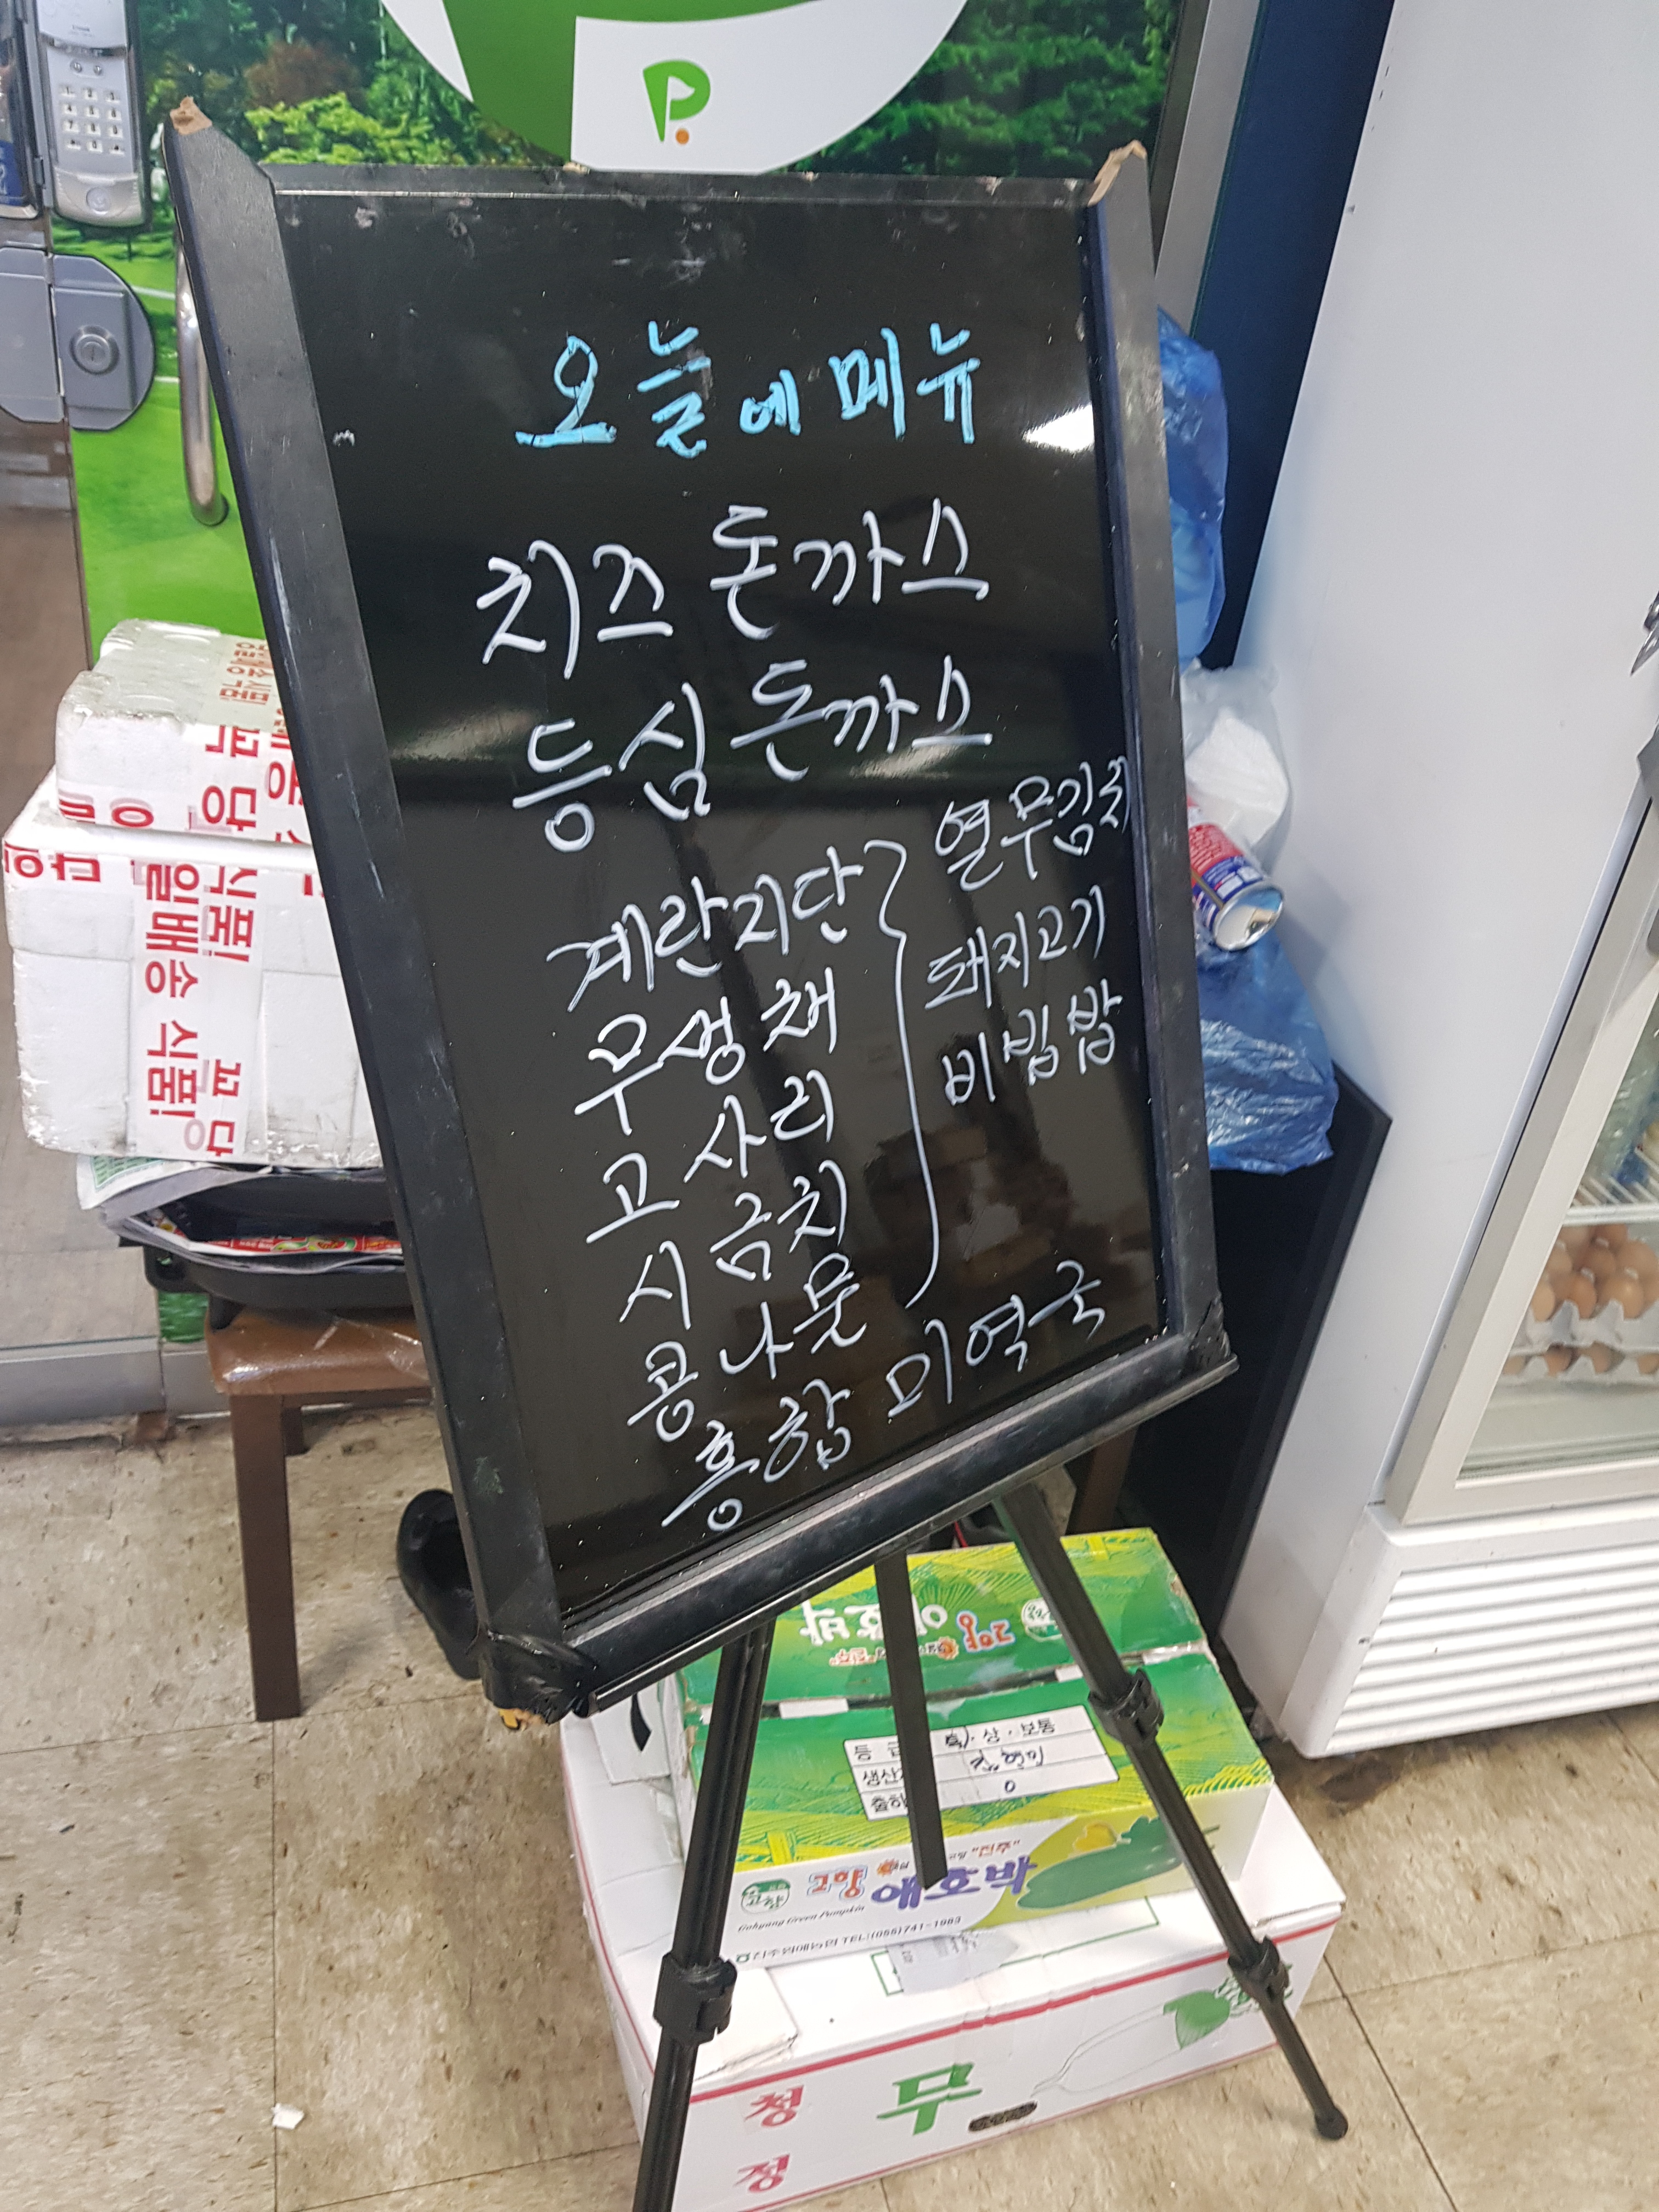 P.
오늘에 메뉴
치즈 돈까스
등심 돈까스
계란지단
무생채
고사리
시금치
콩나물
열무김치
돼지고기
비빔밥
홍합 미역국
식품!
일배송 식품!
꼬당
고향
애호박
등급 특·상·보통
생산
출하
0
고향 애호박
"진주"
Gohyang Green Pumpkin
TEL:(055)741-1983
청
정
무